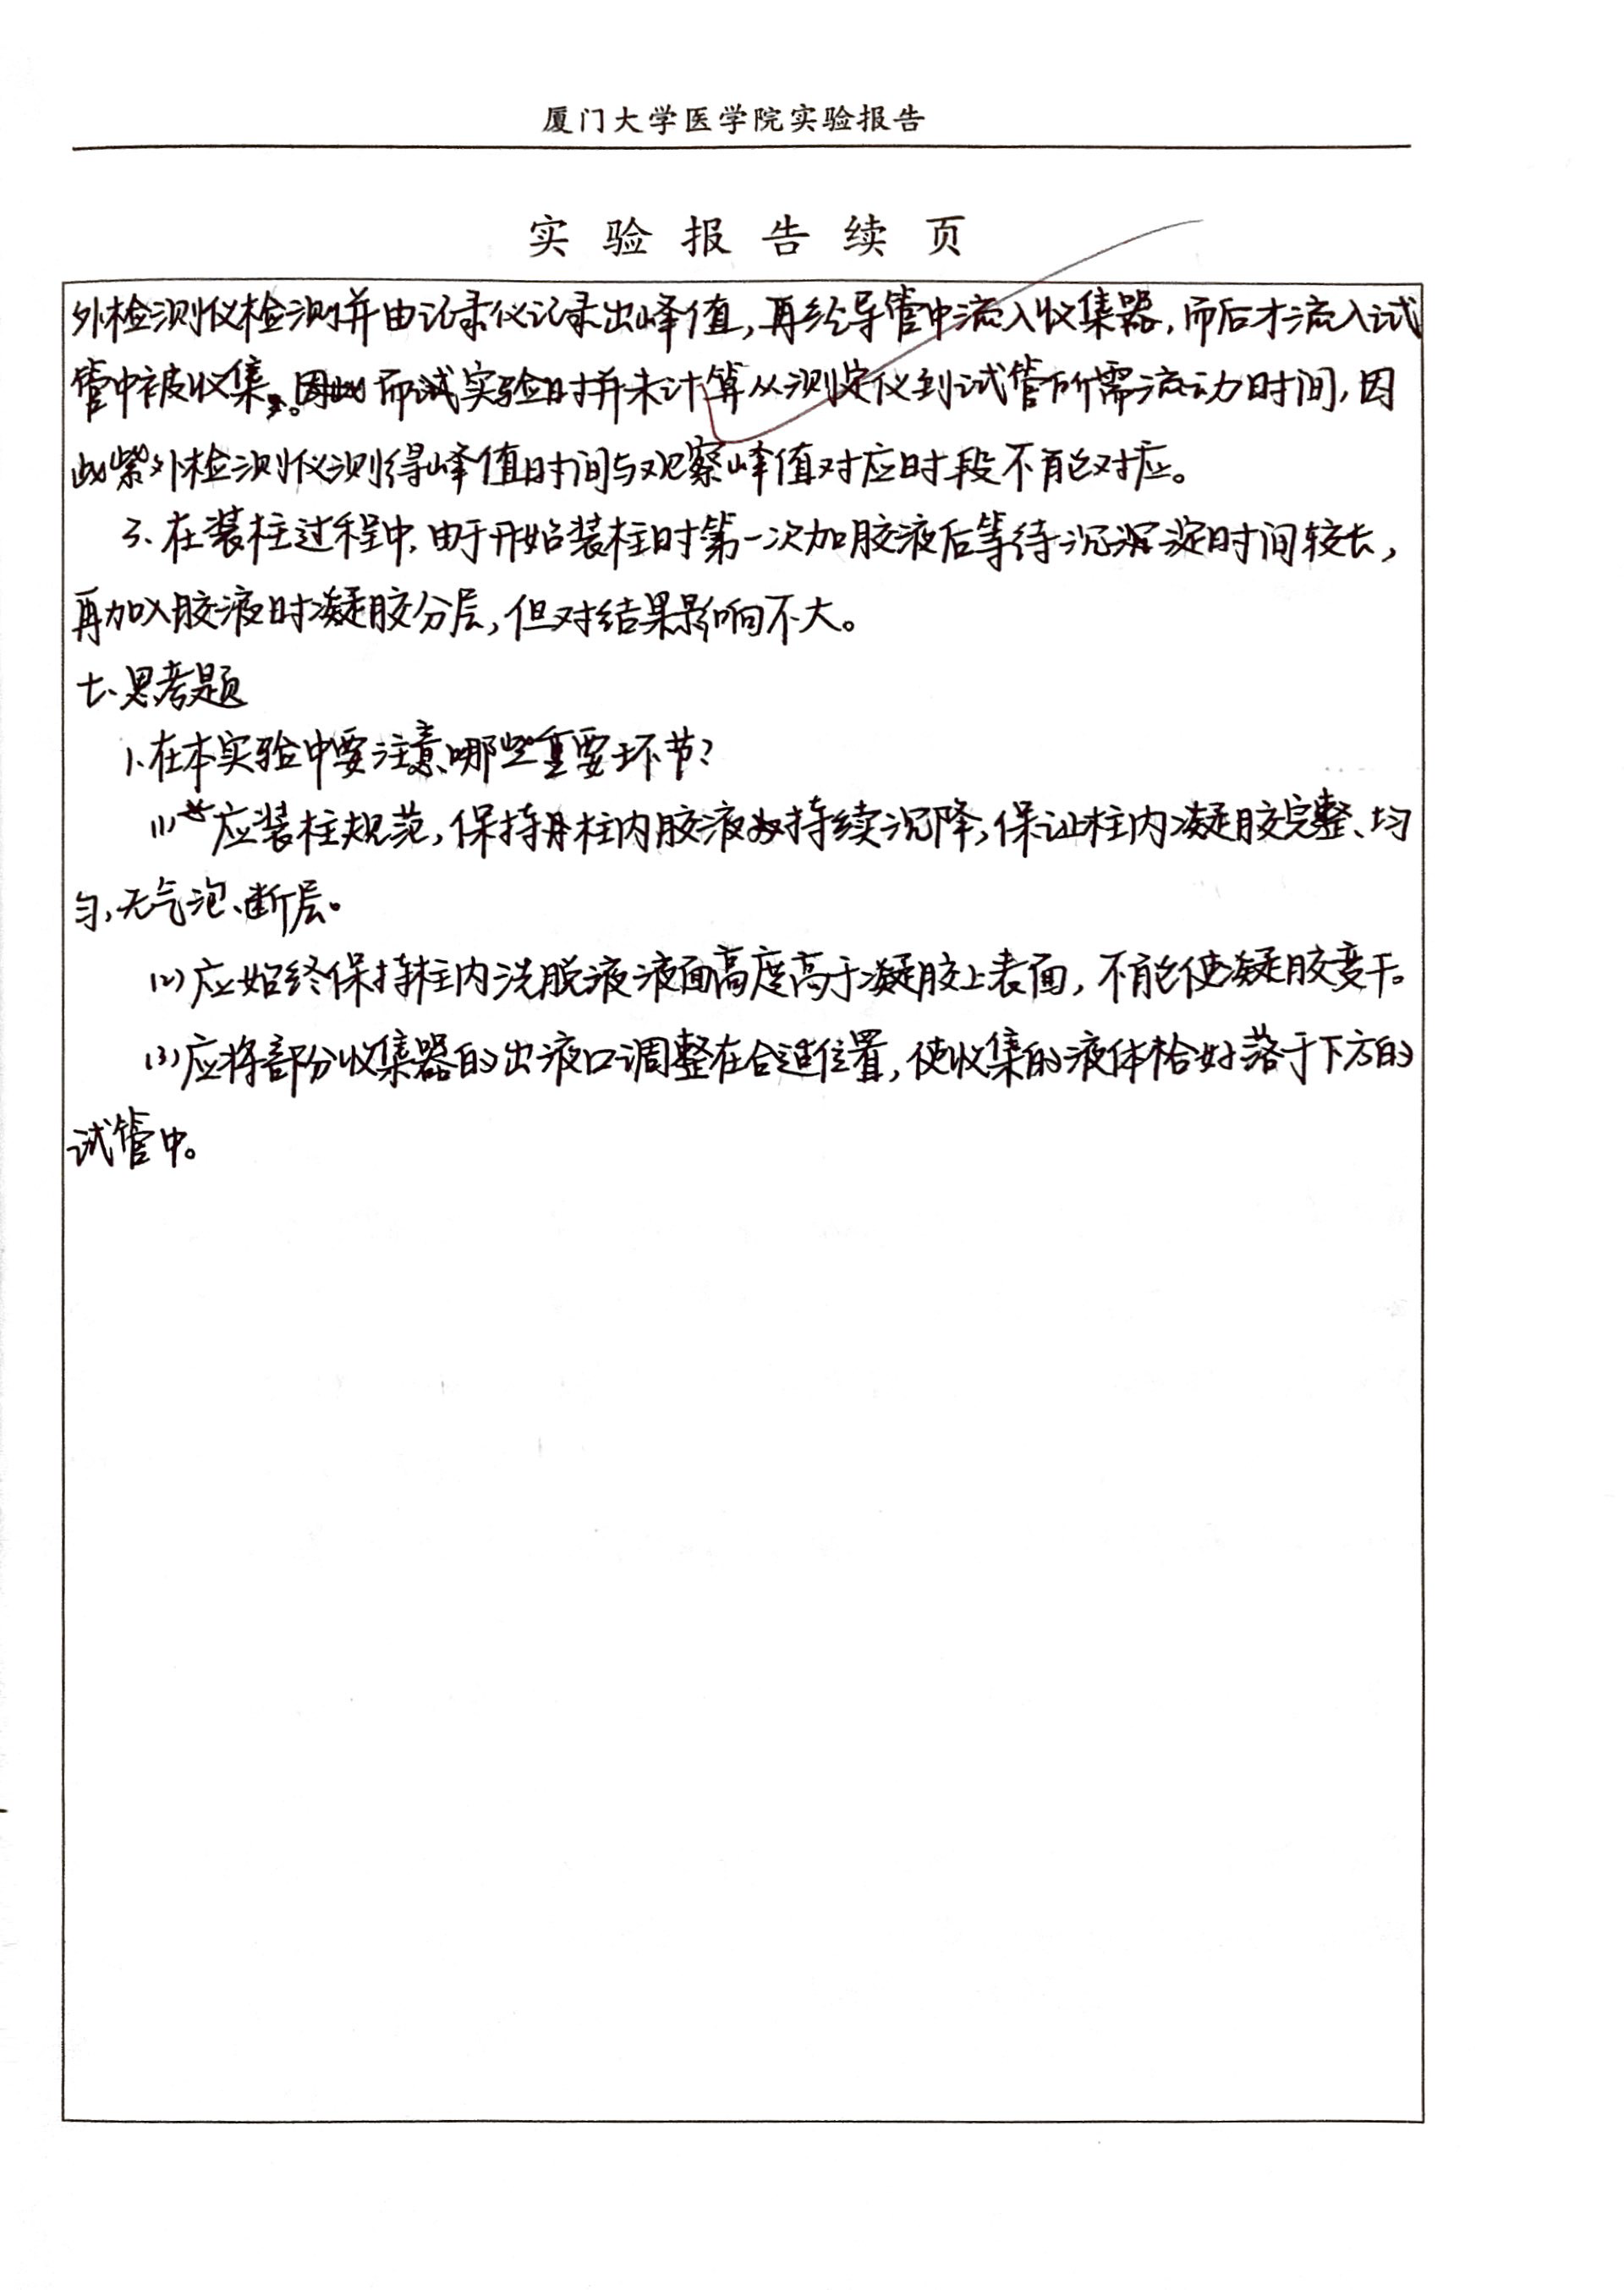 厦门大学医学院实验报告
实验报告续页
外检测仪检测并由记录仪记录出峰值，再经导管中流入收集器，而后才流入试
管中被收集。而试实验时并未计算从测定仪到试管所需流动时间，因
此紫外检测仪测得峰值时间与观察峰值对应时段不能对应。
3、在装柱过程中，由于开始装柱时第一次加胶液后等待沉淀时间较长，
再加入胶液时凝胶分层，但对结果影响不大。
七、思考题
1、在本实验中要注意哪些重要环节？
(1)应装柱规范，保持柱内胶液持续沉降，保证柱内凝胶完整、均
匀，无气泡、断层。
(2)应始终保持柱内洗脱液液面高度高于凝胶上表面，不能使凝胶变干。
(3)应将部份收集器的出液口调整在合适位置，使收集的液体恰好落于下方的
试管中。